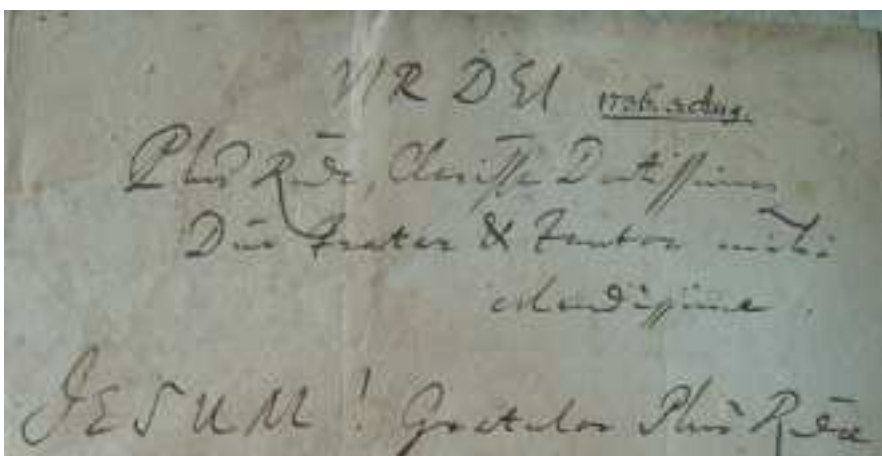 VIR DEI 1736. 3 Aug.
Plur Rnde, Clarisse Doctissime
Dne Frater & Fautor mihi
JESUM! Gratulor Plur Rnde